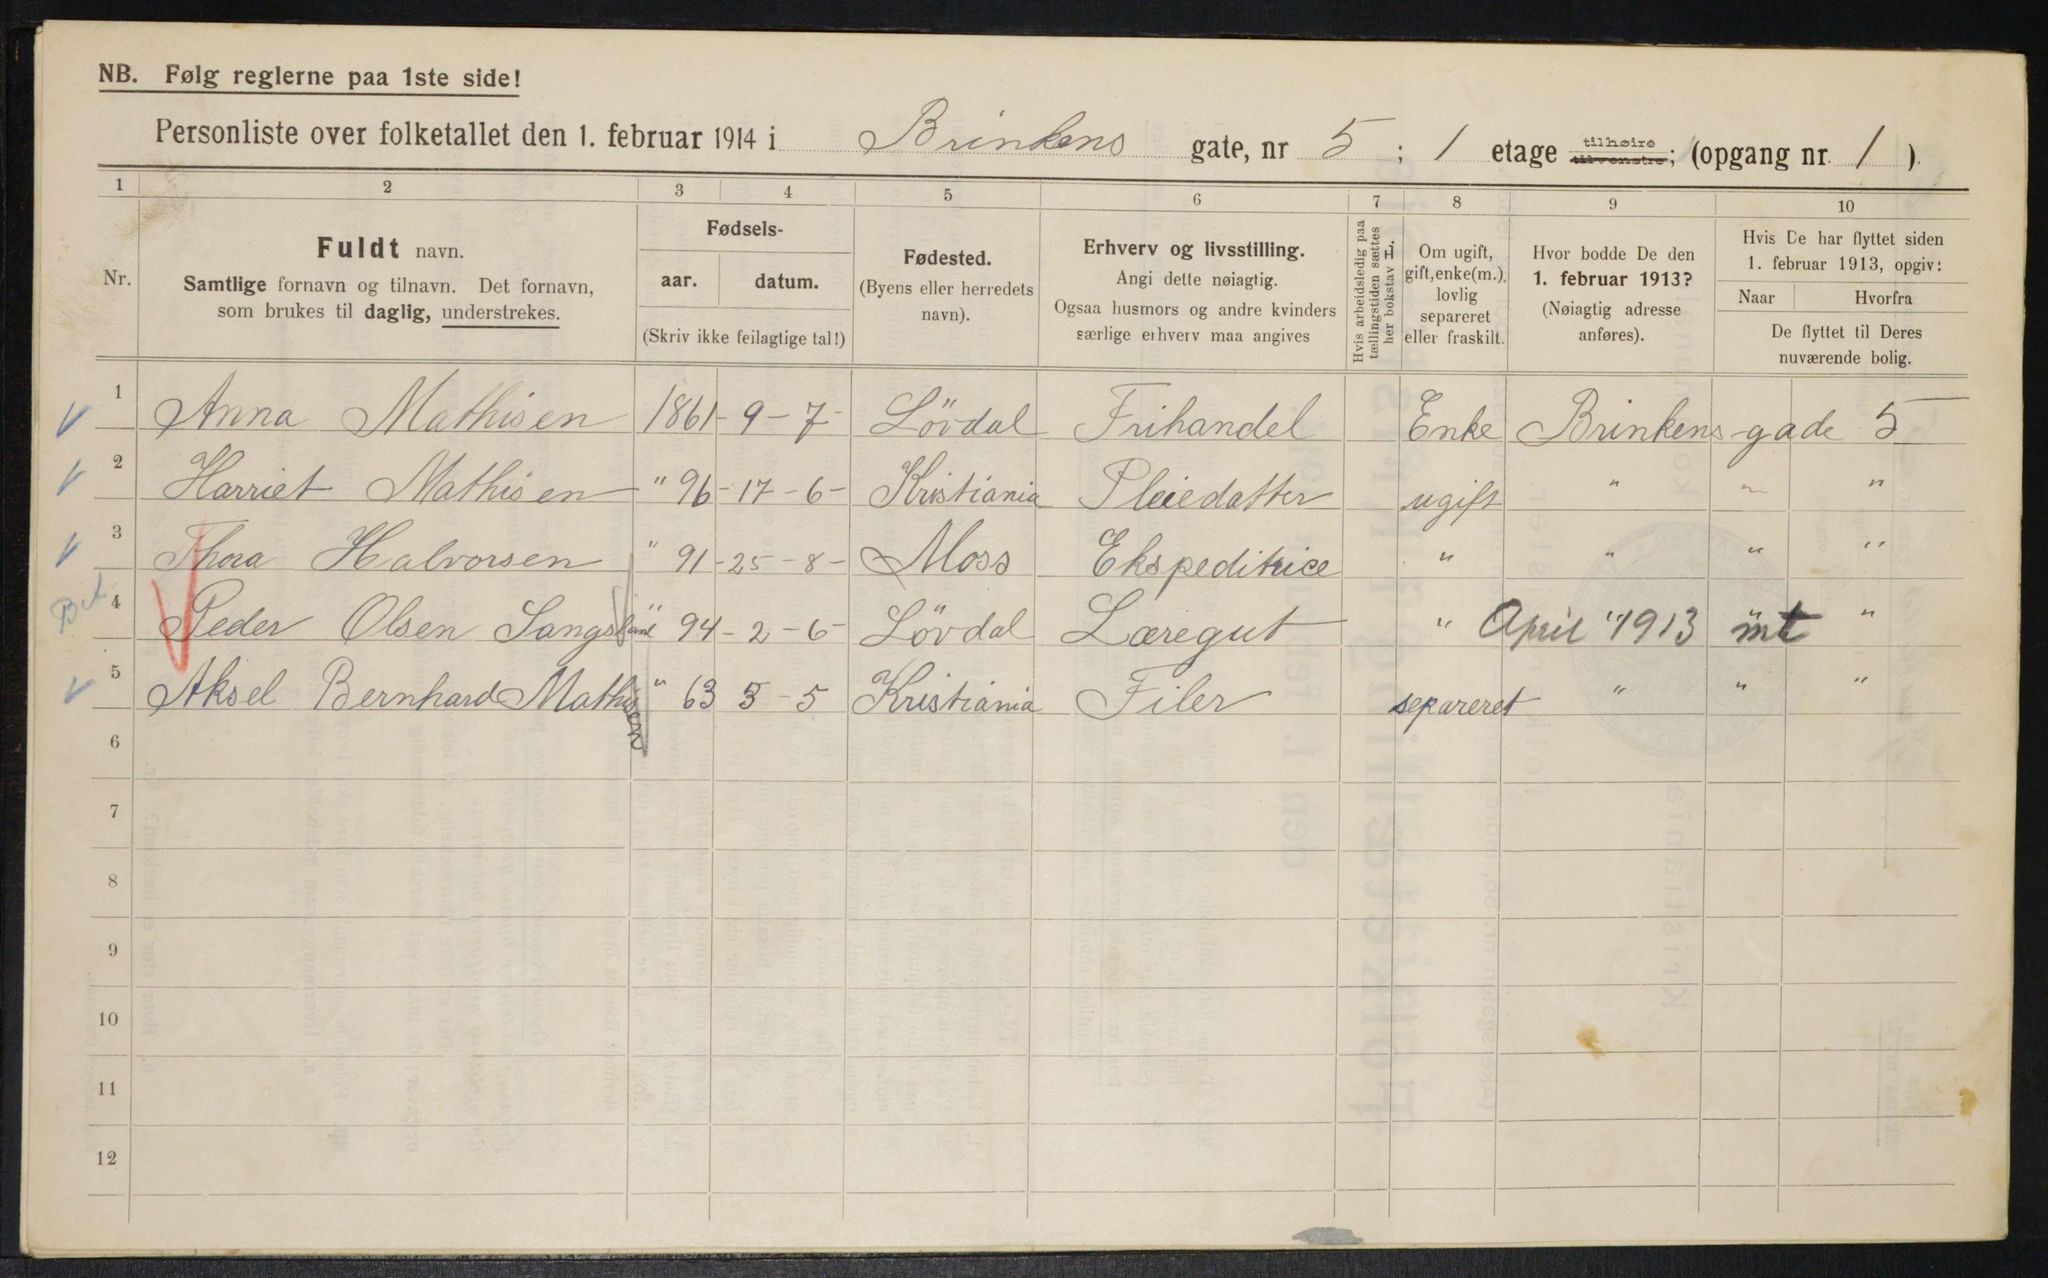 NB. Følg reglerne paa 1ste side!
Personliste over folketallet den 1. februar 1914 i Brinkens gate, nr 5 ; 1 etage tilhøire tilvenstre; (opgang nr. 1 ).
1 2 3 4 5 6 7 8 9 10
Nr.
Fuldt navn.
Samtlige fornavn og tilnavn. Det fornavn,
som brukes til daglig, understrekes.
Fødsels-
aar. datum.
(Skriv ikke feilagtige tal!)
Fødested.
(Byens eller herredets
navn).
Erhverv og livsstilling.
Angi dette nøiagtig.
Ogsaa husmors og andre kvinders
særlige erhverv maa angives
Hvis arbeidsledig paa
tællingstiden sættes
her bokstav L.
Om ugift,
gift, enke(m.),
lovlig
separeret
eller fraskilt.
Hvor bodde De den
1. februar 1913?
(Nøiagtig adresse
anføres).
Hvis De har flyttet siden
1. februar 1913, opgiv:
Naar Hvorfra
De flyttet til Deres
nuværende bolig.
1 Anna Mathisen 1861 - 9 - 7 - Lövdal Frihandel Enke Brinkens gade 5
2 Harriet Mathisen " 96 - 17 - 6 - Kristiania Pleiedatter ugift " " "
3 Thora Halvorsen " 91 - 25 - 8 - Moss Ekspeditrice " " " "
Bet. 4 Peder Olsen Sangsland " 94 - 2 - 6 - Lövdal Læregut " April 1913 "
5 Aksel Bernhard Mathisen " 63 3 - 5 Kristiania Filer separeret " " "
6
7
8
9
10
11
12